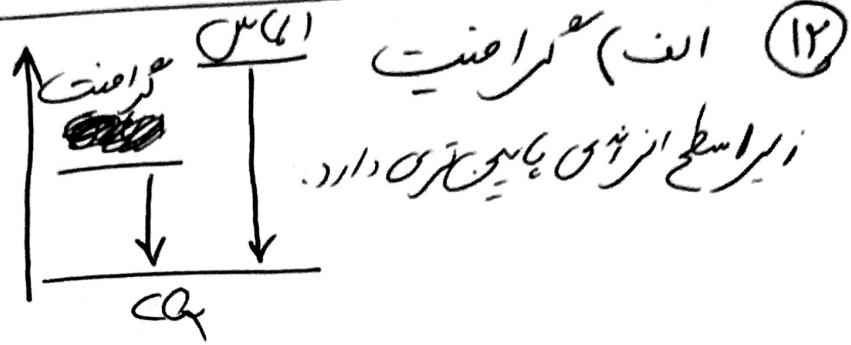 ۱۲ الف) گرافیت
زیرا سطح انرژی پایین‌تری دارد.
الماس
گرافیت
CO₂